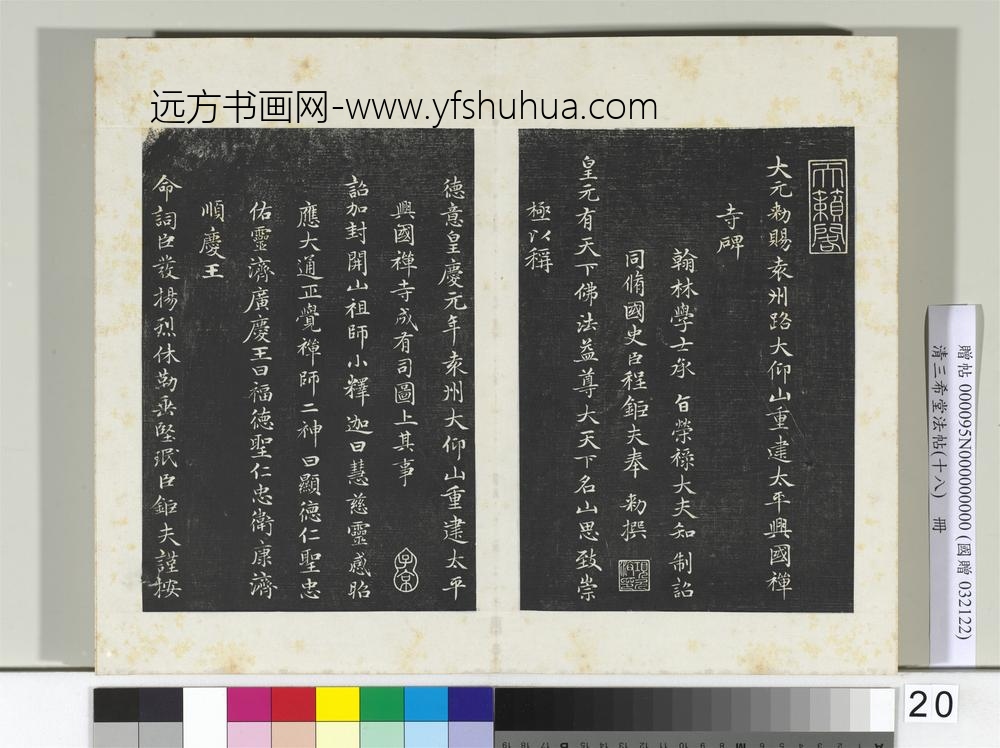 远方书画网-www.yfshuhua.com
天籟閣
大元勑賜袁州路大仰山重建太平興國禪
寺碑
翰林學士承旨榮祿大夫知制詔
同脩國史臣程鉅夫奉勑撰
皇元有天下佛法益尊大天下名山思致崇
極以稱
德意皇慶元年袁州大仰山重建太平
興國禪寺成有司圖上其事
子京
詔加封開山祖師小釋迦曰慧慈靈感昭
應大通正覺禪師二神曰顯德仁聖忠
佑靈濟廣慶王曰福德聖仁忠衛康濟
順慶王
命詞臣發揚烈休勒垂堅珉臣鉅夫謹按
贈帖 000095N000000000 (國贈 032122)
清三希堂法帖(十八) 冊
20